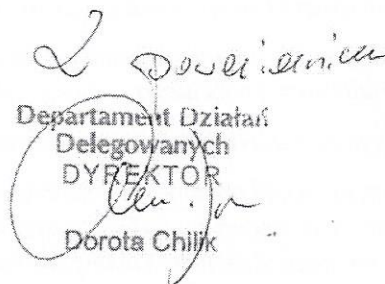 Z poważaniem
Departament Działań
Delegowanych
DYREKTOR
Dorota Chilik